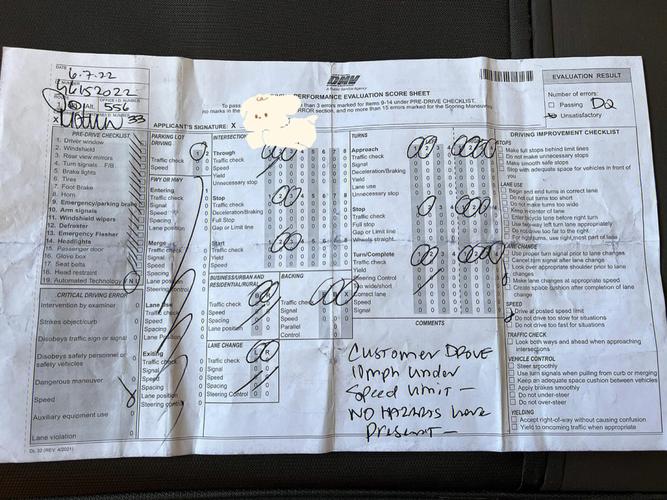 DATE
6.7.22
DMV
A Public Service Agency
DRIVING PERFORMANCE EVALUATION SCORE SHEET
EVALUATION RESULT
Number of errors:
Passing DQ
Unsatisfactory
OFFICE I.D. NUMBER
556
33
APPLICANT'S SIGNATURE: X
PRE-DRIVE CHECKLIST
1. Driver window
2. Windshield
3. Rear view mirrors
4. Turn signals F/B
5. Brake lights
6. Tires
7. Foot Brake
8. Horn
9. Emergency/parking brake
10. Arm signals
11. Windshield wipers
12. Defroster
13. Emergency Flasher
14. Headlights
15. Passenger door
16. Glove box
17. Seat belts
18. Head restraint
19. Automated Technology
CRITICAL DRIVING ERROR
Intervention by examiner 0
Strikes object/curb 0
Disobeys traffic sign or signal 0
Disobeys safety personnel or
safety vehicles 0
Dangerous maneuver
Speed
Auxiliary equipment use 0
Lane violation 0
DL 32 (REV. 4/2021)
PARKING LOT
DRIVING
Traffic check
Speed
FWY OR HWY
Entering
Traffic check
Signal
Speed
Spacing
Merge
Traffic check
Signal
Speed
Spacing
Lane position
Lane Use
Traffic check
Speed
Spacing
Lane position
Exiting
Traffic check
Signal
Speed
Spacing
Lane position
Steering control
INTERSECTION
Through
Traffic check
Speed
Yield
Unnecessary stop
Stop
Traffic check
Deceleration/Braking
Full Stop
Gap or Limit line
Start
Traffic check
Speed
Yield
BUSINESS/URBAN AND
RESIDENTIAL/RURAL
Traffic check
Speed
Spacing
Lane position
LANE CHANGE
Traffic check
Signal
Speed
Spacing
Steering Control
BACKING
Traffic check
Speed
Parallel
Control
TURNS
Approach
Traffic check
Signal
Deceleration/Braking
Yield
Lane use
Unnecessary stop
Stop
Traffic check
Deceleration/Braking
Full Stop
Gap or Limit line
Wheels straight
Turn/Complete
Traffic check
Yield
Steering Control
Too wide/short
Correct lane
Speed
Signal
COMMENTS
CUSTOMER DROVE
10mph under
Speed limit –
NO HAZARDS were
Present –
DRIVING IMPROVEMENT CHECKLIST
STOPS
Make full stops behind limit lines
Do not make unnecessary stops
Make smooth safe stops
Stop with adequate space for vehicles in front of
you
LANE USE
Begin and end turns in correct lane
Do not cut turns too short
Do not make turns too wide
Keep in center of lane
Enter bicycle lane before right turn
Use two-way left turn lane appropriately
Do not move too far to the right
For right turns, use right most part of lane
LANE CHANGE
Use proper turn signal prior to lane changes
Cancel turn signal after lane change
Look over appropriate shoulder prior to lane
change
Make lane changes at appropriate speed
Create space cushion after completion of lane
change
SPEED
Drive at posted speed limit
Do not drive too slow for situations
Do not drive too fast for situations
TRAFFIC CHECK
Look both ways and ahead when approaching
intersections
VEHICLE CONTROL
Steer smoothly
Use turn signals when pulling from curb or merging
Keep an adequate space cushion between vehicles
Apply brakes smoothly
Do not under-steer
Do not over-steer
YIELDING
Accept right-of-way without causing confusion
Yield to oncoming traffic when appropriate